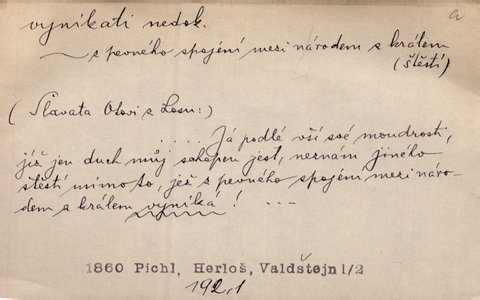 a
vynikati nedok.
s pevného spojení mezi národem s králem
(štěstí)
(Slavata Otovi z Losu:)
......Já podlé vší své moudrosti,
jíž jen duch můj schopen jest, neznám jiného
štěstí mimo to, jež z pevného spojení mezi náro-
dem a králem vyniká! ...
1860 Pichl, Herloš, Valdštejn 1/2
192,1